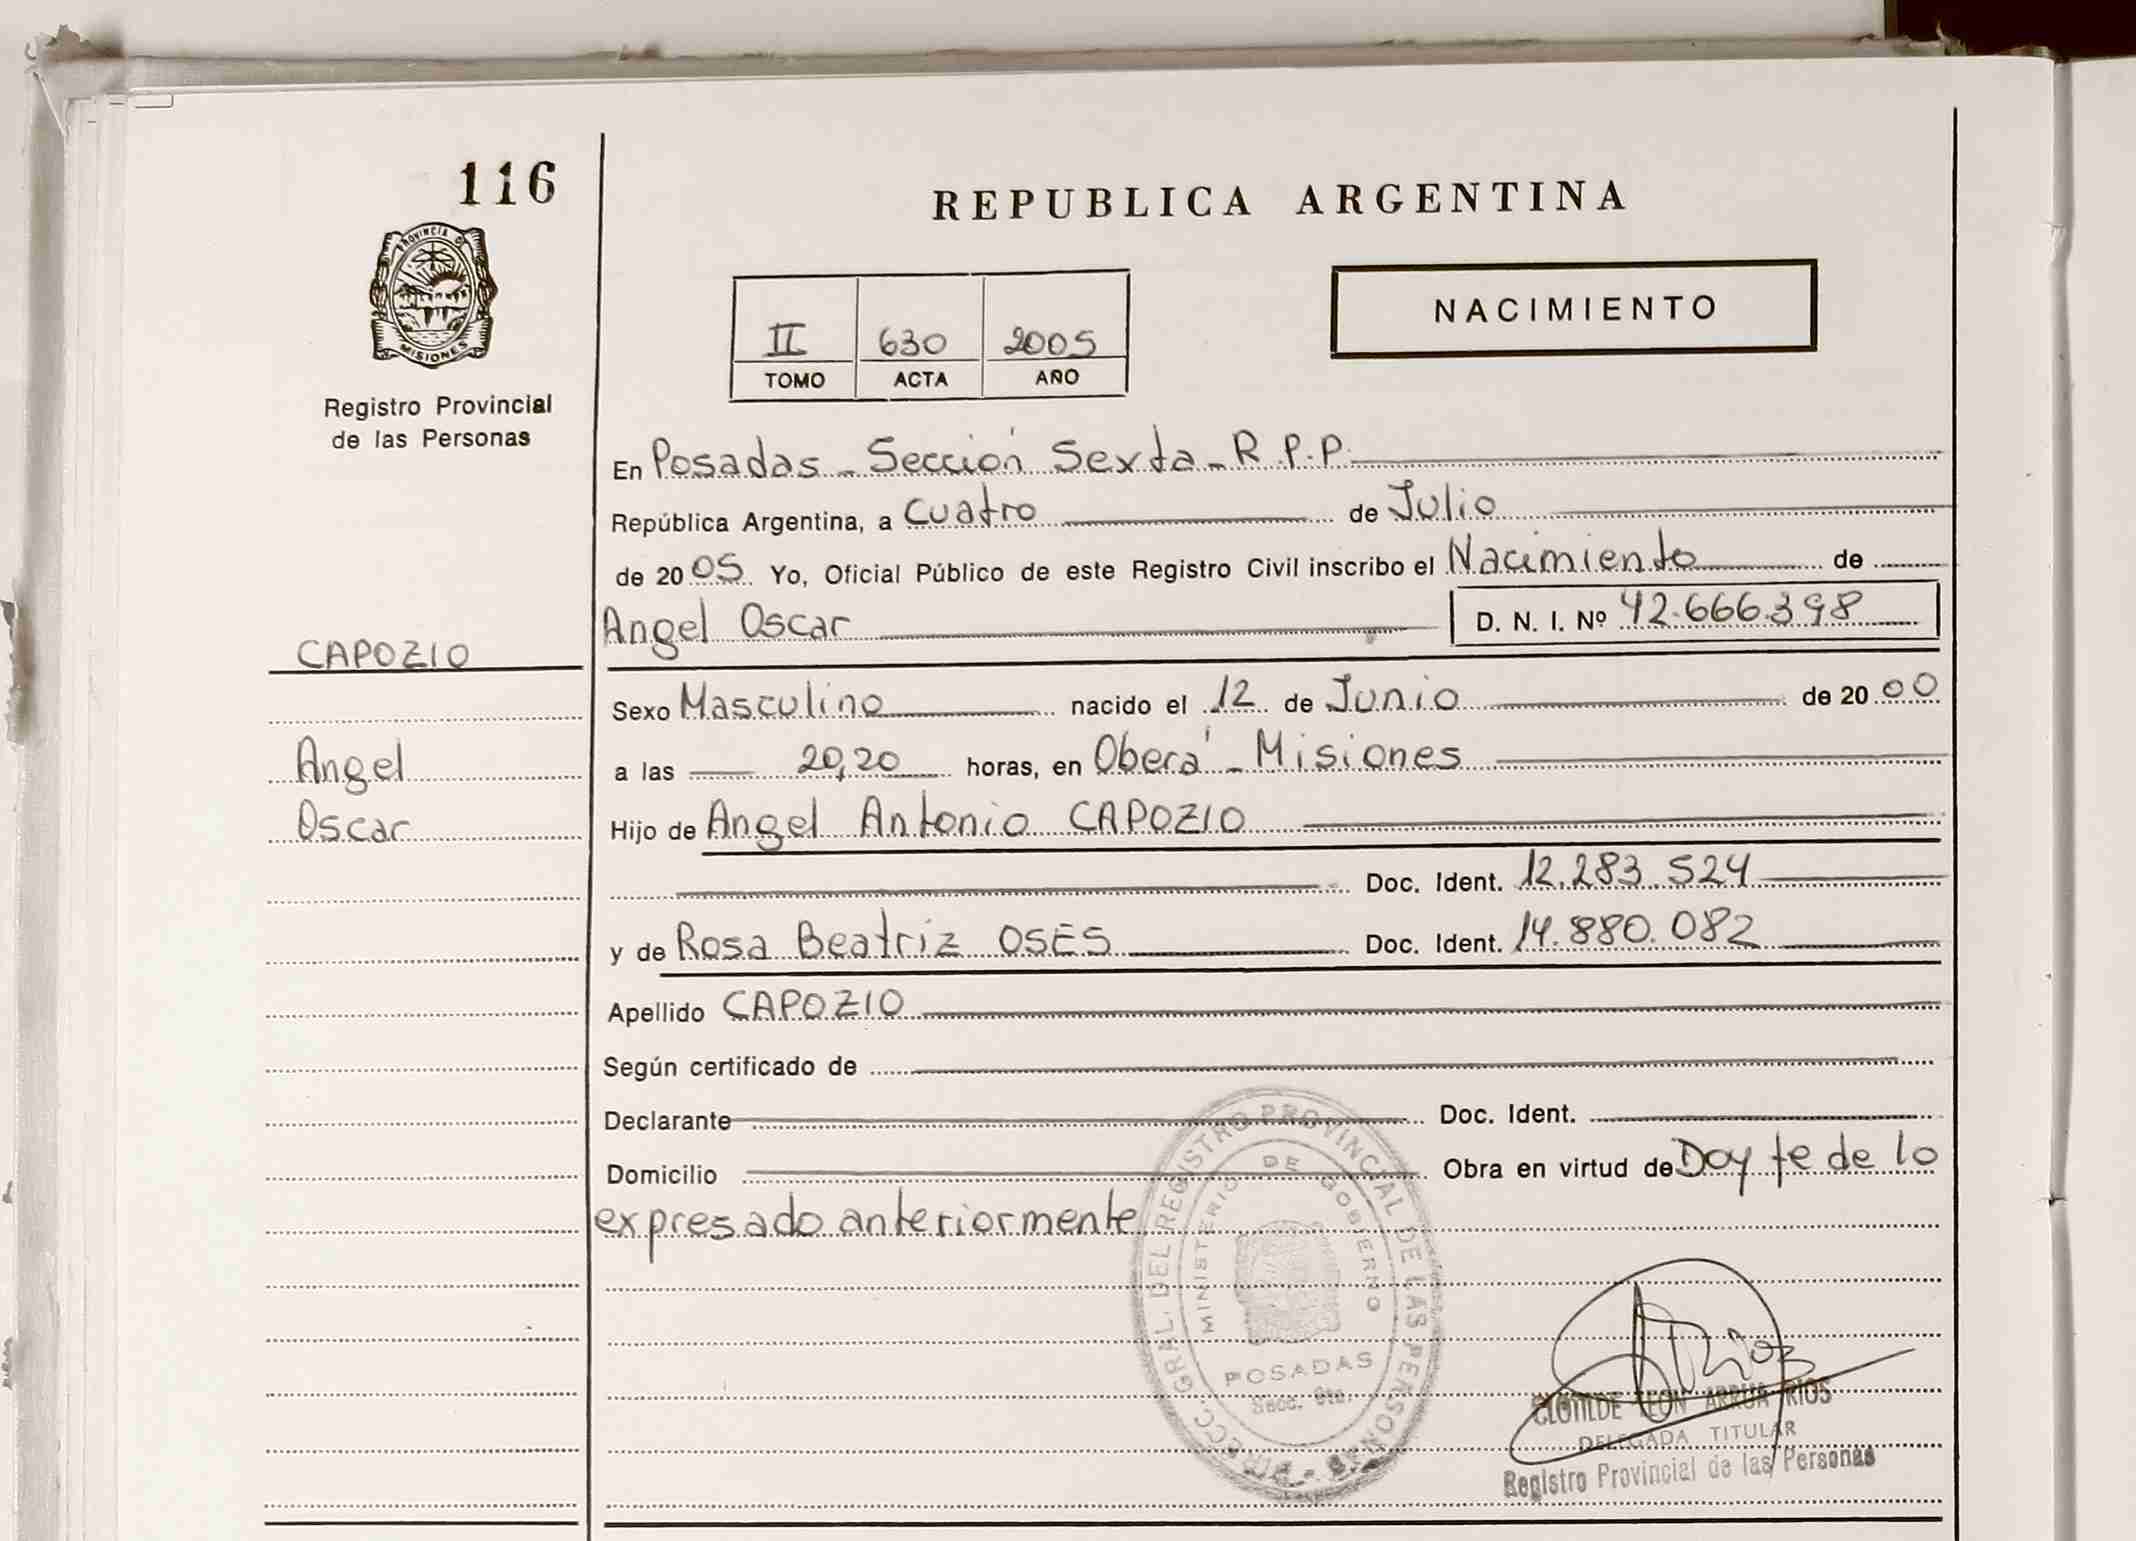 116
PROVINCIA DE
MISIONES
Registro Provincial
de las Personas
REPUBLICA ARGENTINA
II 630 2005
TOMO ACTA AÑO
NACIMIENTO
En Posadas - Sección Sexta - R.P.P.
República Argentina, a Cuatro de Julio
de 2005 Yo, Oficial Público de este Registro Civil inscribo el Nacimiento de
Angel Oscar D. N. I. Nº 42.666.398
CAPOZIO
Sexo Masculino nacido el 12 de Junio de 2000
Angel
a las 20,20 horas, en Oberá - Misiones
Oscar
Hijo de Angel Antonio CAPOZIO
Doc. Ident. 12.283.524
y de Rosa Beatriz OSES Doc. Ident. 14.880.082
Apellido CAPOZIO
Según certificado de
Declarante Doc. Ident.
Domicilio Obra en virtud de Doy fe de lo
expresado anteriormente
DIRECC. GRAL. DEL REGISTRO PROVINCIAL DE LAS PERSONAS
MINISTERIO DE GOBIERNO
POSADAS
Secc. 6ta.
CLOTILDE LEON ARRUA RIOS
DELEGADA TITULAR
Registro Provincial de las Personas